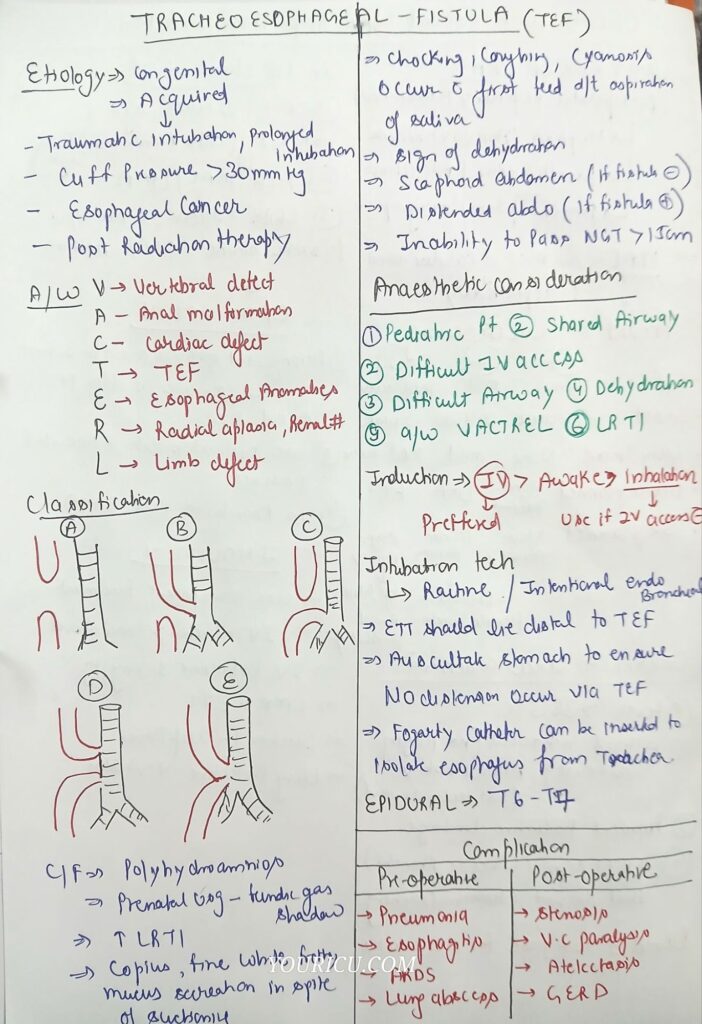 TRACHEO ESOPHAGEAL - FISTULA (TEF)
Etiology ⇒ Congenital
⇒ Acquired
↓
- Traumatic intubation, Prolonged
intubation
- Cuff Pressure > 30 mm Hg
- Esophageal Cancer
- Post Radiation therapy
A/W V → Vertebral defect
A - Anal malformation
C - Cardiac defect
T → TEF
E → Esophageal Anomalies
R → Radial aplasia, Renal #
L → Limb defect
Classification
A B C
D E
C/F ⇒ Polyhydroamnios
⇒ Prenatal USG - fundic gas
shadow
⇒ ↑ LRTI
⇒ Copius, fine white frothy
mucus secreation in spite
of suctioning
⇒ Chocking, Coughing, Cyanosis
Occur c̄ first feed d/t aspiration
of saliva
⇒ Sign of dehydration
⇒ Scaphoid abdomen (if fistula ⊖)
⇒ Distended abdo (if fistula ⊕)
⇒ Inability to Pass NGT > 15cm
Anaesthetic consideration
① Pediatric Pt ② Shared Airway
② Difficult IV access
③ Difficult Airway ④ Dehydration
⑤ a/w VACTREL ⑥ LRTI
Induction ⇒ IV > Awake > Inhalation
↓ ↓
Preffered Use if IV access ⊖
Intubation tech
↳ Routine / Intentional endo
Bronchial
⇒ ETT should be distal to TEF
⇒ Auscultate stomach to ensure
No distension occur via TEF
⇒ Fogarty catheter can be inserted to
isolate esophagus from Trachea
EPIDURAL ⇒ T6 - T7
Complication
Pre-operative Post-operative
→ Pneumonia → Stenosis
→ Esophagitis → V.C paralysis
→ ARDS → Atelectasis
→ Lung abscess → GERD
YOURICU.COM